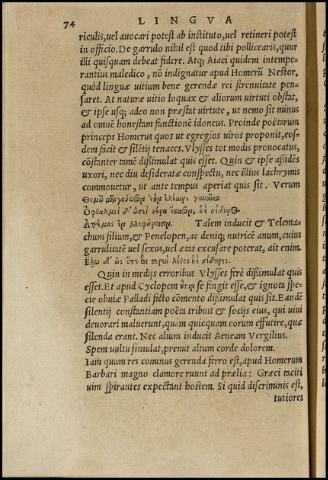 74 LINGVA
riculis, uel auocari potest ab instituto, uel retineri potest
in officio. De garrulo nihil est quod tibi pollicearis, quur
illi quisquam debeat fidere. Atq; Aiaci quidem intempe-
rantius maledico, nō indignatur apud Homerū Nestor,
quòd linguæ uitium bene gerendæ rei strenuitate pen-
saret. At naturæ uitio loquax & aliorum uirtuti obstat,
& ipse usq; adeo non præstat uirtute, ut nemo sit minus
ad omnē honestam functionē idoneus. Proinde poëtarum
princeps Homerus quos ut egregios uiros proponit, eos-
dem facit & silētij tenaces. Vlysses tot modis prouocatus,
cōstanter tamē dißimulat quis esset. Quin & ipse aßidēs
uxori, nec diu desideratæ conspectu, nec illius lachrymis
commouetur, ut ante tempus aperiat quis sit. Verum
Θυμῷ μὲν γοόωσαν ἑὴν ἐλέαιρε γυναῖκα
Ὀφθαλμοὶ δ' ὡσεὶ κέρα ἕστασαν, ἠὲ σίδηρος
Ἀτρέμας ἐν βλεφάροισιν. Talem inducit & Telema-
chum filium, & Penelopen, ac deniq; nutricē anum, cuius
garrulitatē uel sexus, uel ætas excusare poterat, ait enim.
Ἕξω δ' ὡς ὅτε τις στερεὴ λίθος ἠὲ σίδηρος.
Quin in medijs erroribus Vlysses ferè dißimulat quis
esset. Et apud Cyclopem οὔτιν se fingit esse, & ignota spe-
cie obuiæ Palladi ficto cōmento dißimulat quis sit. Eandē
silentij constantiam poëta tribuit & socijs eius, qui uiui
deuorari maluerunt, quàm quicquam eorum effutire, quæ
silenda erant. Nec alium inducit Aeneam Vergilius.
Spem uultu simulat, premit altum corde dolorem.
Iam quum res cominus gerenda ferro est, apud Homerum
Barbari magno clamore ruunt ad prælia: Græci taciti
uim spirantes expectant hostem. Si quid discriminis est,
tutiores